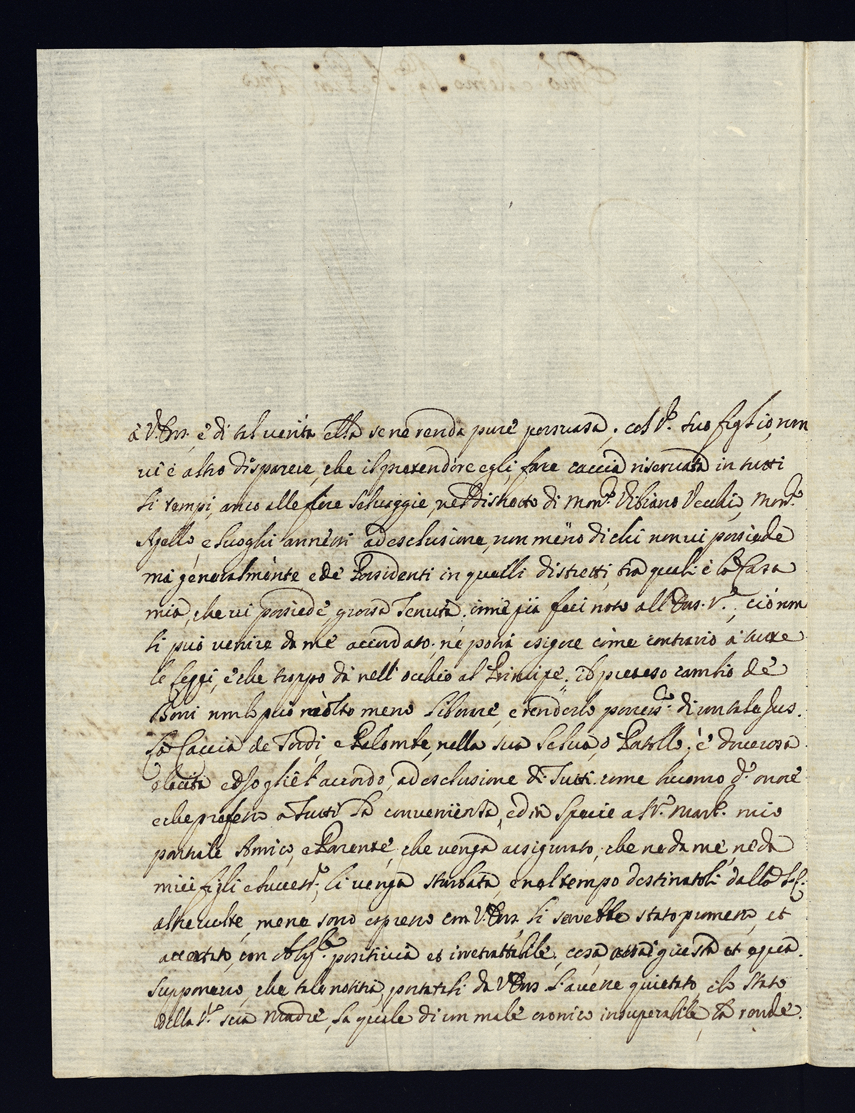 è V. Em. è di tal verità ella se ne renda pure persuasa, col Sr. suo figlio, non
vi è altro disparere, che il pretendere egli fare caccia riservata in tutti
li tempi, anco alle fiere Selvaggie, nel distretto di Monte Vibiano Vecchio, Monte
Apello, e luoghi annessi ad esclusione, non meno di chi non vi possiede
mà generalmente e de Possidenti in quelli distretti, tra quali è la Casa
mia, che vi possiede grossa Tenuta, come già feci noto all'Em. V.; ciò non
li può venire da me accordato, ne potrà esigere come contrario a tutte
le leggi, e che troppo dà nell'occhio al Principe. Il preteso cambio de
Boni non li può molto meno liberare, e renderlo di un tale Jus.
La Caccia de Tordi e Palombe, nella sua Selva, o è doverosa
placita ed accordo, ad esclusione di Tutti come huomo d'onore
e che preferisco a Tutti la convenienza, ed in specie a Sr. March. mio
partiale Amico, e Parente, che venga assigurato, che ne da me, ne da
miei figli e success.ri li venga sturbata, e nel tempo destinatoli dalla
altre volte, mene sono espresso con V. Em. li sarebbe stato permesso, et
accertato, con positiva et inretrattabile, cosa assai giusta et equa.
Supponevo, che tale notitia portatali da V. Em. l'avesse quietato e lo stato
della Sra. sua Madre, la quale di un male cronico insuperabile, la rende